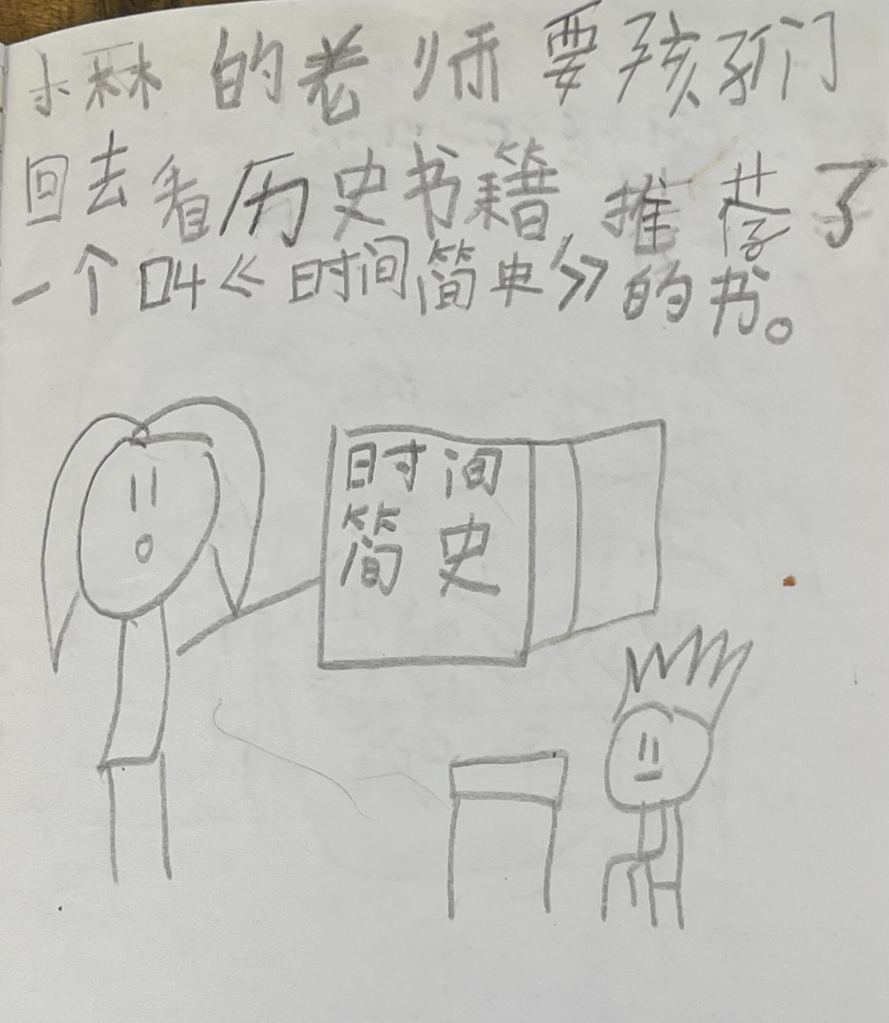 小森的老师要孩子们
回去看历史书籍,推荐了
一个叫《时间简史》的书。
时间
简史